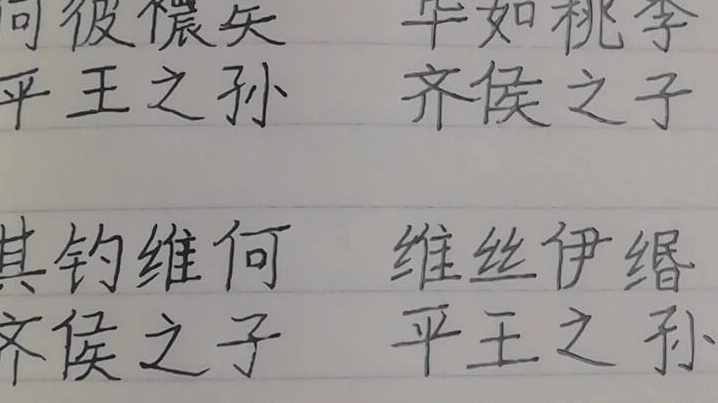 何彼襛矣 华如桃李
平王之孙 齐侯之子
其钓维何 维丝伊缗
齐侯之子 平王之孙